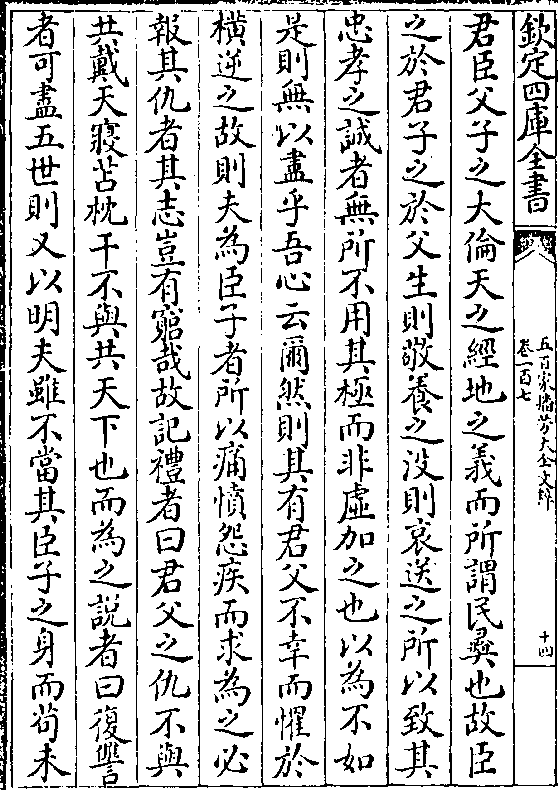 欽定四庫全書
五百家播芳大全文粹
卷一百七
十四
君臣父子之大倫天之經地之義而所謂民彞也故臣
之於君子之於父生則敬養之沒則哀送之所以致其
忠孝之誠者無所不用其極而非虛加之也以為不如
是則無以盡乎吾心云爾然則其有君父不幸而懼於
橫逆之故則夫為臣子者所以痛憤怨疾而求為之必
報其仇者其志豈有窮哉故記禮者曰君父之仇不與
共戴天寢苫枕干不與共天下也而為之說者曰復讐
者可盡五世則又以明夫雖不當其臣子之身而苟未